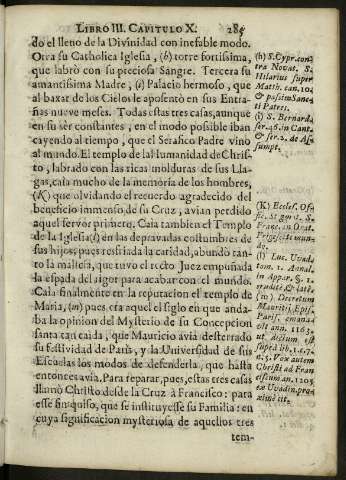 LIBRO III. CAPITULO X. 285
do el lleno de la Divinidad con inefable modo.
Otra su Catholica Iglesia, (h) torre fortissima,
que labrò con su preciosa Sangre. Tercera su
amantissima Madre, (i) Palacio hermoso, que
al baxar de los Cielos le aposentò en sus Entra-
ñas nueve meses. Todas estas tres casas, aunque
en su sèr constantes, en el modo possible iban
cayendo al tiempo, que el Serafico Padre vino
al mundo. El templo de la Humanidad de Chris-
to, labrado con las ricas molduras de sus Lla-
gas, caìa mucho de la memoria de los hombres,
(K) que olvidando el recuerdo agradecido del
beneficio immenso de su Cruz, avian perdido
aquel fervor primero. Caìa tambien el Templo
de la Iglesia (l) en las depravadas costumbres de
sus hijos; pues resfriada la caridad, abundò tan-
to la malicia, que tuvo el recto Juez empuñada
la espada del rigor para acabar con el mundo.
Caìa finalmente en la reputacion el templo de
Maria, (m) pues era aquel el siglo en que anda-
ba la opinion del Mysterio de su Concepcion
santa tan caida, que Mauricio avia desterrado
su festividad de Paris, y la Universidad de sus
Escuelas los modos de defenderla, que hasta
entonces avia. Para reparar, pues, estas tres casas
llamò Christo desde la Cruz à Francisco: para
esse fin quiso, que se instituyesse su Familia: en
cuya significacion mysteriosa de aquellos tres
tem-
(h) S. Cypr. con-
tra Novat. S.
Hilarius super
Matth. can. 10.
& passim Sanc-
ti Patres.
(i) S. Bernard.
ser. 46. in Cant.
& ser. 2. de As-
sumpt.
(K) Eccles. Of-
fic. Stigm. S.
Franc. in Orat.
Frigescente mun-
do.
(l) Luc. Uvad.
tom. 1. Annal.
in Appar. §. 1.
(m) Decretum
Mauritij Epis.
Paris. emana-
est ann. 1163.
ut dictum est
supra lib. 1. c. 7.
n. 5. Vox autem
Christi ad Fran-
ciscum an. 1205.
ex Uvadin. præ-
ximè cit.